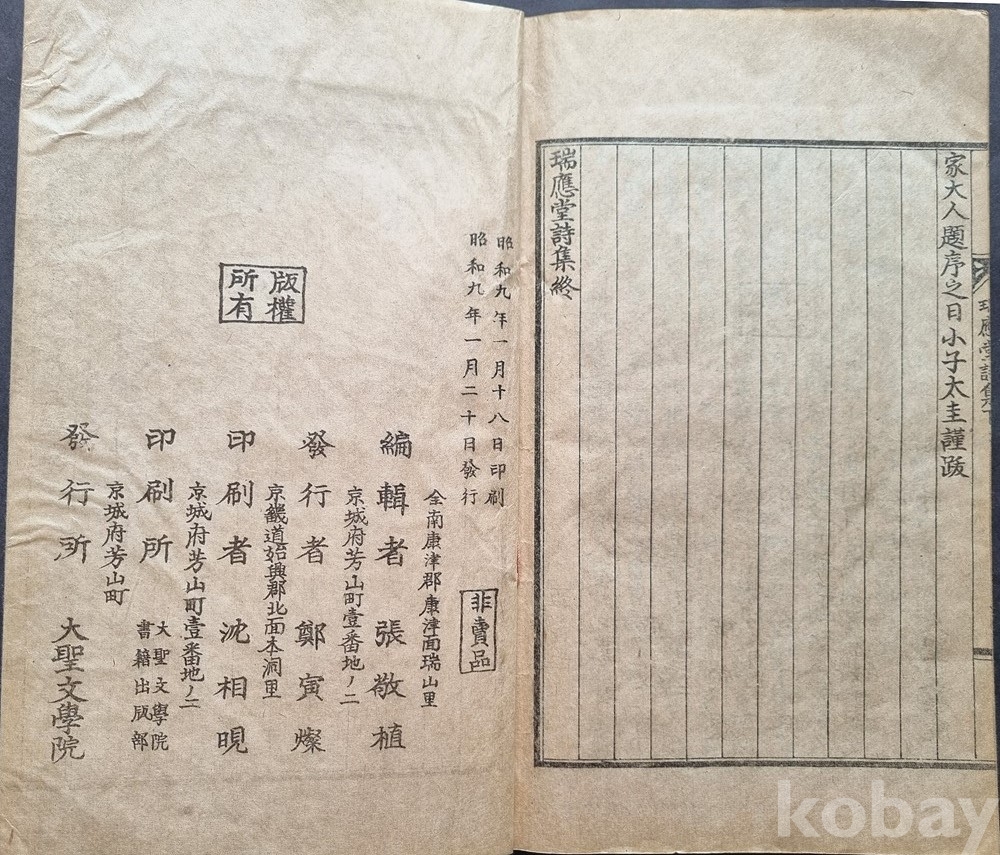 家大人題序之日小子太圭謹跋
瑞應堂詩集
瑞應堂詩集終
昭和九年一月十八日印刷
昭和九年一月二十日發行
非賣品
版權
所有
全南康津郡康津面瑞山里
編輯者 張敬植
京城府芳山町壹番地ノ二
發行者 鄭寅燦
京畿道始興郡北面本洞里
印刷者 沈相晛
京城府芳山町壹番地ノ二
印刷所 大聖文學院
書籍出版部
京城府芳山町
發行所 大聖文學院
kobay